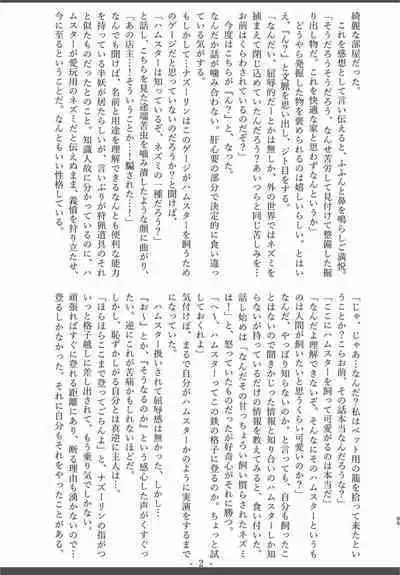 綺麗な部屋だった。
これを感想として言い伝えると、ふふんと鼻を鳴らしご満悦。
「そうだろうそうだろう、なんせ苦労して見付けて整備した掘
り出し物だ。これを快適な家と思わずなんというか」
どうやら発掘した物を褒められるのは嬉しいらしい。とはい
え、『ん?』と文脈を思い出し、ジト目をする。
「なんだい、屈辱的だーとかは無しか、外の世界ではネズミを
捕まえて閉じ込めていたんだろう?あいつらと同じ苦しみを…
お前はくらわされているのだぞ?」
今度はこちらが『ん?』と、なった。
なんだか話が噛み合わない。肝心要の部分で決定的に食い違っ
ている気がする。
もしかして…ナズーリンはこのゲージがハムスターを飼うため
のゲージだと思っていないのだろうか?と聞けば、
「ハムスターは知っているぞ、ネズミの一種だろう?」
と話し、こちらを見た途端苦虫を噛み潰したような顔に曲がり、
「あの店主…!そういうことか…騙された…!」
なんでも聞けば、名前と用途を理解できるなんとも便利な能力
を持っている半妖が居たらしいが、言いぶりが狩猟道具のそれ
と似たものだったとのこと。知識人故に分かっているのに、ハ
ムスターが愛玩用のネズミだと伝えぬまま、義憤を狩り立たせ、
今に至るということだ。なんともいい性格している。
「じゃ、じゃあ…なんだ?私はペット用の籠を拾って来たとい
うことか?こらお前、その話本当なんだろうな?」
「ここにハムスターを飼って可愛がるのは本当だ」
「なんだよ理解できないぞ。そんなにそのハムスターとやらという
のは人間が飼いたいと思うくらい可愛いのか?」
なんだ、やっぱり知らないのか、と言っても、自分も飼ったこ
とはないので聞きかじった情報と知り合いのハムスターしか知
らないが持っているだけの情報を教えてみると、食い付いた。
話し始めは「なんだその甘っちょろい飼い慣らされたネズミ
は!」と、怒っていたものだったが好奇心がそれに勝つ。
「へ〜、ハムスターってこの鉄の格子に登るのか。ちょっと試
しておくれよ」
気付けば、まるで自分がハムスターかのように実演をするまで
になっていた。
ハムスター扱いされて屈辱感は無かった。しかし…
「おぉ」とか、「そうなるのか」という感心した声がくすぐっ
たい。逆にこれが苦痛かもしれないほどだ。
しかし、恥ずかしがる自分とは真逆に主人は…、
「ほらほらここまで登ってごらんよ」と、ナズーリンの指がつ
いっと格子越しに差し出されて、もう乗り気でしかない。
頑張ればすぐに登れる距離にあり、断る理由も湧かないので…
登るしかなかった。それに自分もそれをやったことがある、
- 2 -